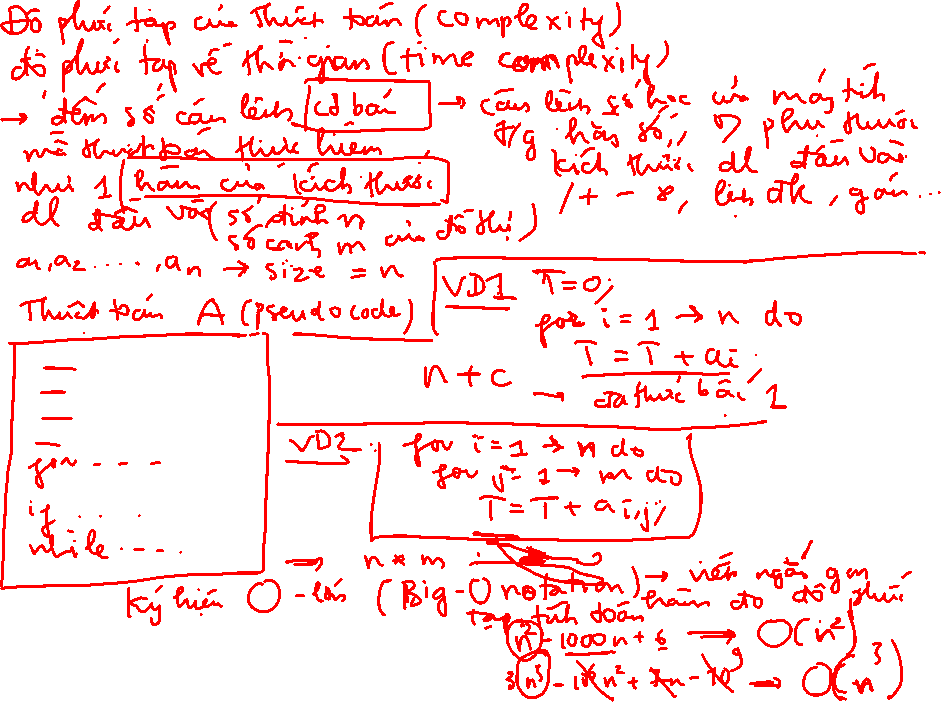 Độ phức tạp của thuật toán (complexity)
độ phức tạp về thời gian (time complexity)
→ đếm số câu lệnh cơ bản
mà thuật toán thực hiện
như 1 hàm của kích thước
dl đầu vào (số đỉnh n
số cạnh m của đồ thị)
→ câu lệnh số học của máy tính
t/g hằng số, phụ thuộc
kích thước dl đầu vào
/+ - *, lệnh đk, gán...
a1, a2, ...., an → size = n
Thuật toán A (pseudocode)
for - - - -
if . . . .
while - - - -
VD1 T=0;
for i = 1 → n do
T = T + ai;
n + c → đa thức bậc 1
VD2: for i = 1 → n do
for j = 1 → m do
T = T + ai,j;
→ n * m
Ký hiệu O - lớn (Big-O notation) → viết ngắn gọn
hàm đo độ phức
tạp tính toán
n² - 1000n + 6 ⟹ O(n²)
3n³ - n² + n - → O(n³)